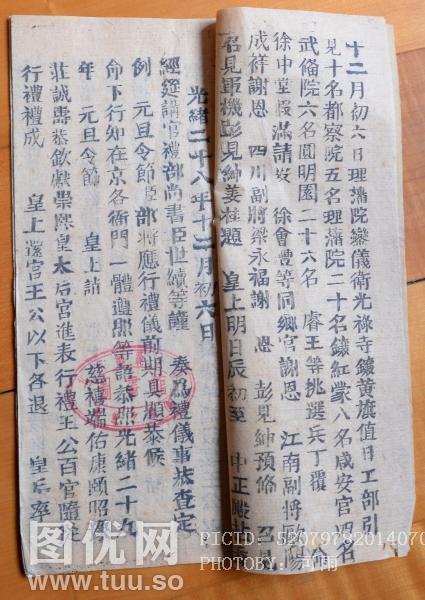 十二月初六日理藩院鑾儀衛光祿寺鑲黃旗值日工部引
見十名都察院五名理藩院二十名鑲紅蒙八名咸安宮四名
武備院六名圓明園二十六名 睿王等挑選兵丁覆 命
徐中堂假滿請安 徐會灃等同鄉官謝恩 江南副將歐陽
成祥謝恩 四川副將梁永福謝 恩 彭見紳預備 召見
召見軍機彭見紳姜桂題 皇上明日辰初至 中正殿
光緒二十八年十二月初六日
經筵講官禮部尚書臣世續等謹 奏為禮儀事恭查定
例 元旦令節臣部將應行禮儀前期具題恭候
命下行知在京各衙門一體遵照等語恭照光緒二十九
年 元旦令節 皇上詣 慈禧端佑康頤昭豫
莊誠壽恭欽獻崇熙皇太后宮進表行禮王公百官隨從
行禮禮成 皇上還宮王公以下各退 皇后率
图优网
www.tuu.so
PICID: 52079782014070
PHOTOBY: 河雨